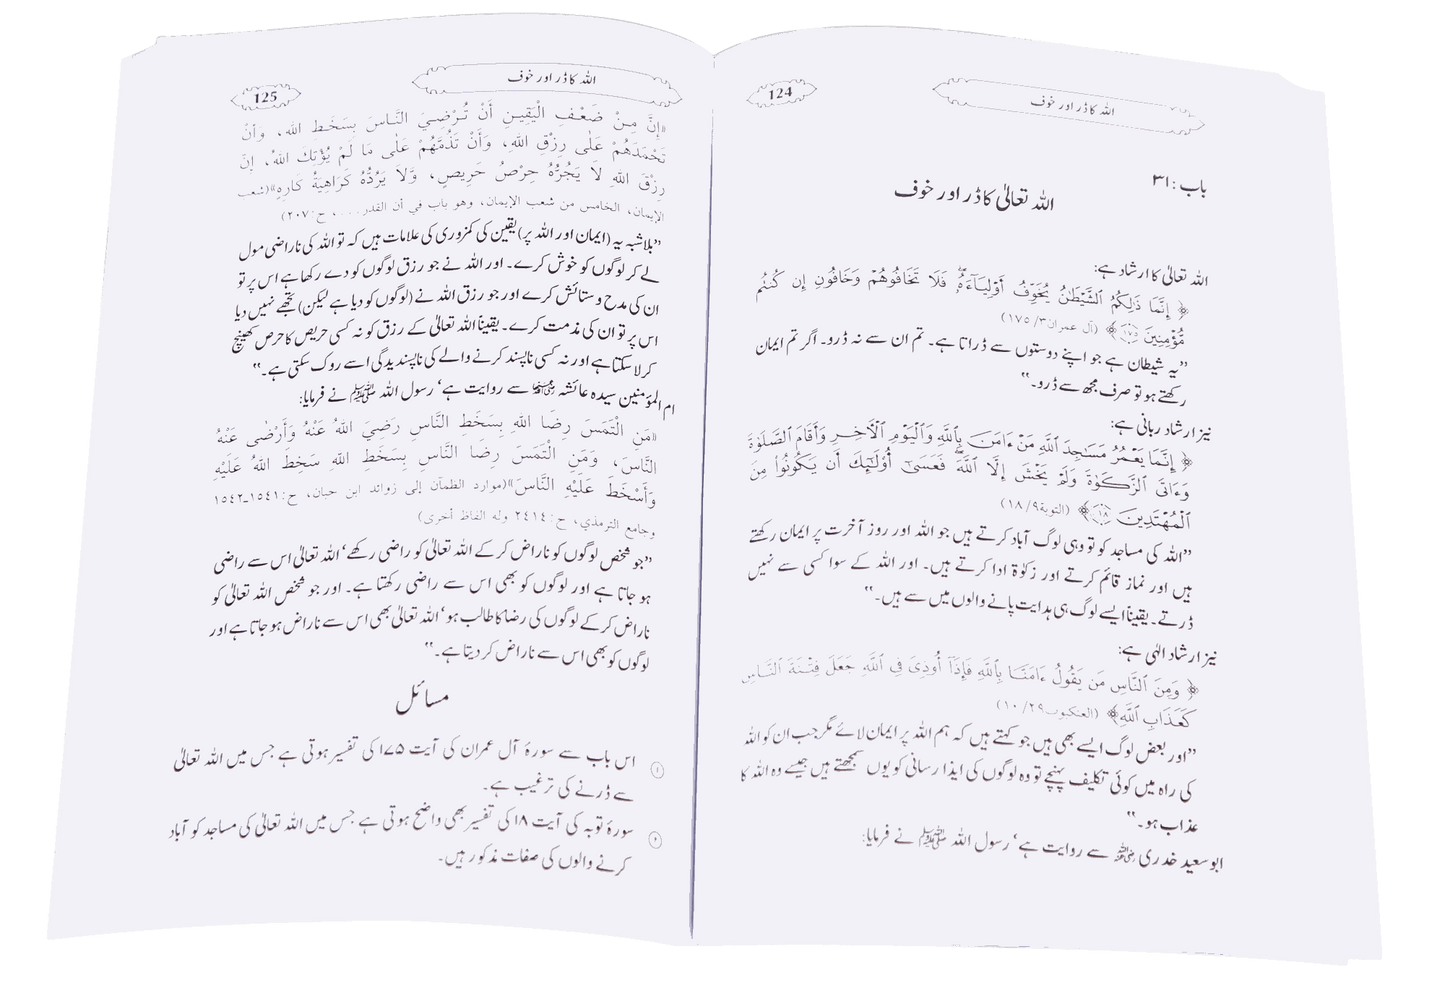 اللہ کا ڈر اور خوف
124
باب : ۳۱
اللہ تعالیٰ کا ڈر اور خوف
اللہ تعالیٰ کا ارشاد ہے:
﴿ إِنَّمَا ذَٰلِكُمُ ٱلشَّيْطَٰنُ يُخَوِّفُ أَوْلِيَآءَهُۥ فَلَا تَخَافُوهُمْ وَخَافُونِ إِن كُنتُم
مُّؤْمِنِينَ ١٧٥ ﴾ (آل عمران٣/ ١٧٥)
”یہ شیطان ہے جو اپنے دوستوں سے ڈراتا ہے۔ تم ان سے نہ ڈرو۔ اگر تم ایمان
رکھتے ہو تو صرف مجھ سے ڈرو۔“
نیز ارشاد ربانی ہے:
﴿ إِنَّمَا يَعْمُرُ مَسَٰجِدَ ٱللَّهِ مَنْ ءَامَنَ بِٱللَّهِ وَٱلْيَوْمِ ٱلْءَاخِرِ وَأَقَامَ ٱلصَّلَوٰةَ
وَءَاتَى ٱلزَّكَوٰةَ وَلَمْ يَخْشَ إِلَّا ٱللَّهَ فَعَسَىٰٓ أُو۟لَٰٓئِكَ أَن يَكُونُوا۟ مِنَ
ٱلْمُهْتَدِينَ ١٨ ﴾ (التوبة٩/ ١٨)
”اللہ کی مساجد کو تو وہی لوگ آباد کرتے ہیں جو اللہ اور روز آخرت پر ایمان رکھتے
ہیں اور نماز قائم کرتے اور زکوٰۃ ادا کرتے ہیں۔ اور اللہ کے سوا کسی سے نہیں
ڈرتے۔ یقیناً ایسے لوگ ہی ہدایت پانے والوں میں سے ہیں۔“
نیز ارشاد الٰہی ہے:
﴿ وَمِنَ ٱلنَّاسِ مَن يَقُولُ ءَامَنَّا بِٱللَّهِ فَإِذَآ أُوذِىَ فِى ٱللَّهِ جَعَلَ فِتْنَةَ ٱلنَّاسِ
كَعَذَابِ ٱللَّهِ ﴾ (العنكبوت٢٩/ ١٠)
”اور بعض لوگ ایسے بھی ہیں جو کہتے ہیں کہ ہم اللہ پر ایمان لائے مگر جب ان کو اللہ
کی راہ میں کوئی تکلیف پہنچے تو وہ لوگوں کی ایذا رسانی کو یوں سمجھتے ہیں جیسے وہ اللہ کا
عذاب ہو۔“
ابو سعید خدری رضی اللہ عنہ سے روایت ہے‘ رسول اللہ ﷺ نے فرمایا:
اللہ کا ڈر اور خوف
125
«إِنَّ مِنْ ضَعْفِ الْيَقِينِ أَنْ تُرْضِيَ النَّاسَ بِسَخَطِ اللهِ، وَأَنْ
تَحْمَدَهُمْ عَلَى رِزْقِ اللهِ، وَأَنْ تَذُمَّهُمْ عَلَى مَا لَمْ يُؤْتِكَ اللهُ، إِنَّ
رِزْقَ اللهِ لَا يَجُرُّهُ حِرْصُ حَرِيصٍ، وَلَا يَرُدُّهُ كَرَاهِيَةُ كَارِهٍ»(شعب
الإيمان، الخامس من شعب الإيمان، وهو باب في أن القدر....، ح:٢٠٧)
”بلاشبہ یہ (ایمان اور اللہ پر) یقین کی کمزوری کی علامات ہیں کہ تو اللہ کی ناراضی مول
لے کر لوگوں کو خوش کرے۔ اور اللہ نے جو رزق لوگوں کو دے رکھا ہے اس پر تو
ان کی مدح و ستائش کرے اور جو رزق اللہ نے (لوگوں کو دیا ہے لیکن) تجھے نہیں دیا
اس پر تو ان کی مذمت کرے۔ یقیناً اللہ تعالیٰ کے رزق کو نہ کسی حریص کا حرص کھینچ
کر لا سکتا ہے اور نہ کسی ناپسند کرنے والے کی ناپسندیدگی اسے روک سکتی ہے۔“
ام المؤمنین سیدہ عائشہ رضی اللہ عنہا سے روایت ہے‘ رسول اللہ ﷺ نے فرمایا:
«مَنِ الْتَمَسَ رِضَا اللهِ بِسَخَطِ النَّاسِ رَضِيَ اللهُ عَنْهُ وَأَرْضَى عَنْهُ
النَّاسَ، وَمَنِ الْتَمَسَ رِضَا النَّاسِ بِسَخَطِ اللهِ سَخِطَ اللهُ عَلَيْهِ
وَأَسْخَطَ عَلَيْهِ النَّاسَ»(موارد الظمآن إلى زوائد ابن حبان، ح:١٥٤١-١٥٤٢
وجامع الترمذي، ح:٢٤١٤ وله الفاظ أخرى)
”جو شخص لوگوں کو ناراض کر کے اللہ تعالیٰ کو راضی رکھے‘ اللہ تعالیٰ اس سے راضی
ہو جاتا ہے اور لوگوں کو بھی اس سے راضی رکھتا ہے۔ اور جو شخص اللہ تعالیٰ کو
ناراض کر کے لوگوں کی رضا کا طالب ہو‘ اللہ تعالیٰ بھی اس سے ناراض ہو جاتا ہے اور
لوگوں کو بھی اس سے ناراض کر دیتا ہے۔“
مسائل
① اس باب سے سورۂ آل عمران کی آیت ۱۷۵ کی تفسیر ہوتی ہے جس میں اللہ تعالیٰ
سے ڈرنے کی ترغیب ہے۔
② سورۂ توبہ کی آیت ۱۸ کی تفسیر بھی واضح ہوتی ہے جس میں اللہ تعالیٰ کی مساجد کو آباد
کرنے والوں کی صفات مذکور ہیں۔